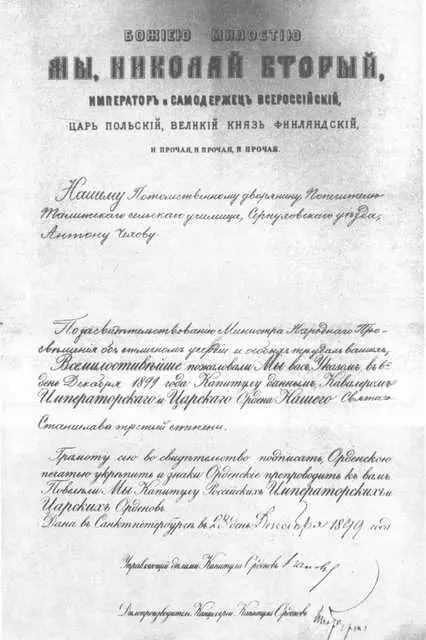 БОЖІЕЮ МИЛОСТІЮ
МЫ, НИКОЛАЙ ВТОРЫЙ,
ИМПЕРАТОРЪ и САМОДЕРЖЕЦЪ ВСЕРОССІЙСКІЙ,
ЦАРЬ ПОЛЬСКІЙ, ВЕЛИКІЙ КНЯЗЬ ФИНЛЯНДСКІЙ,
И ПРОЧАЯ, И ПРОЧАЯ, И ПРОЧАЯ.
Нашему Потомственному дворянину, Попечителю
Талежскаго сельскаго училища, Серпуховскаго уѣзда,
Антону Чехову.
По засвидѣтельствованію Министра Народнаго Про-
свѣщенія объ отличномъ усердіи и особыхъ трудахъ вашихъ,
Всемилостивѣйше пожаловали Мы васъ Указомъ, въ 6
день Декабря 1899 года Капитулу даннымъ, Кавалеромъ
Императорскаго и Царскаго Ордена Нашего Святаго
Станислава третьей степени.
Грамоту сію во свидѣтельство подписать, Орденскою
печатью укрѣпить и знаки Орденскіе препроводить къ вамъ
Повелѣли Мы Капитулу Россійскихъ Императорскихъ и
Царскихъ Орденовъ.
Дана въ Санктпетербургѣ въ день Декабря 1899 года
Управляющій дѣлами Капитула Орденовъ
Дѣлопроизводитель Канцеляріи Капитула Орденовъ